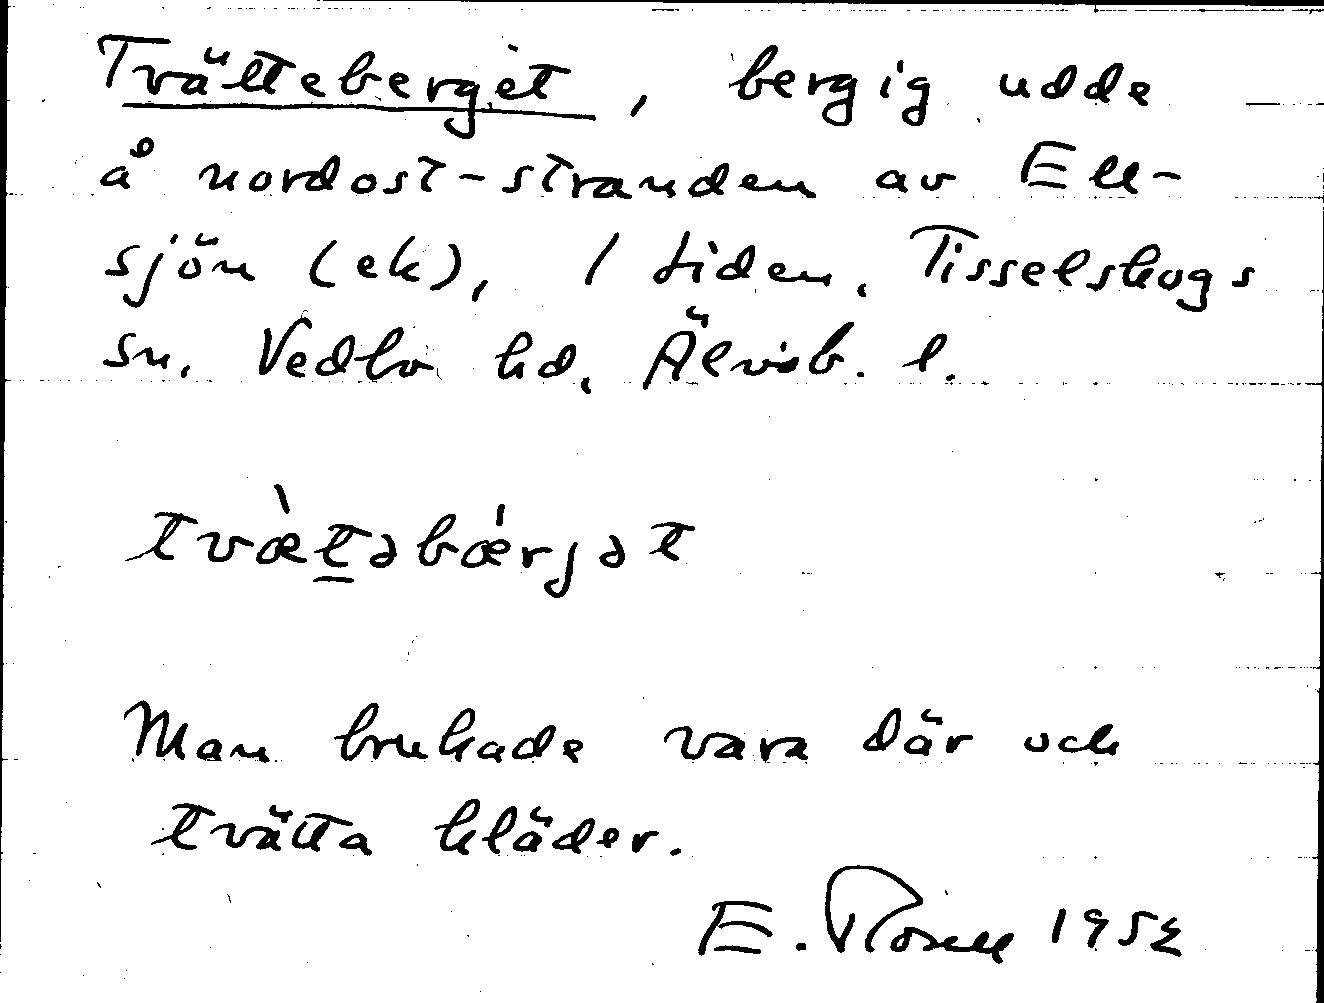 Tvätteberget, bergig udde
å nordost-stranden av Ell-
sjön (ek), / Liden, Tisselskogs
sn. Vedbo hd. Älvsb. l.
tvæ̀t̲əbǽrjət
Man brukade vara där och
tvätta kläder.
E. Rosell 1952